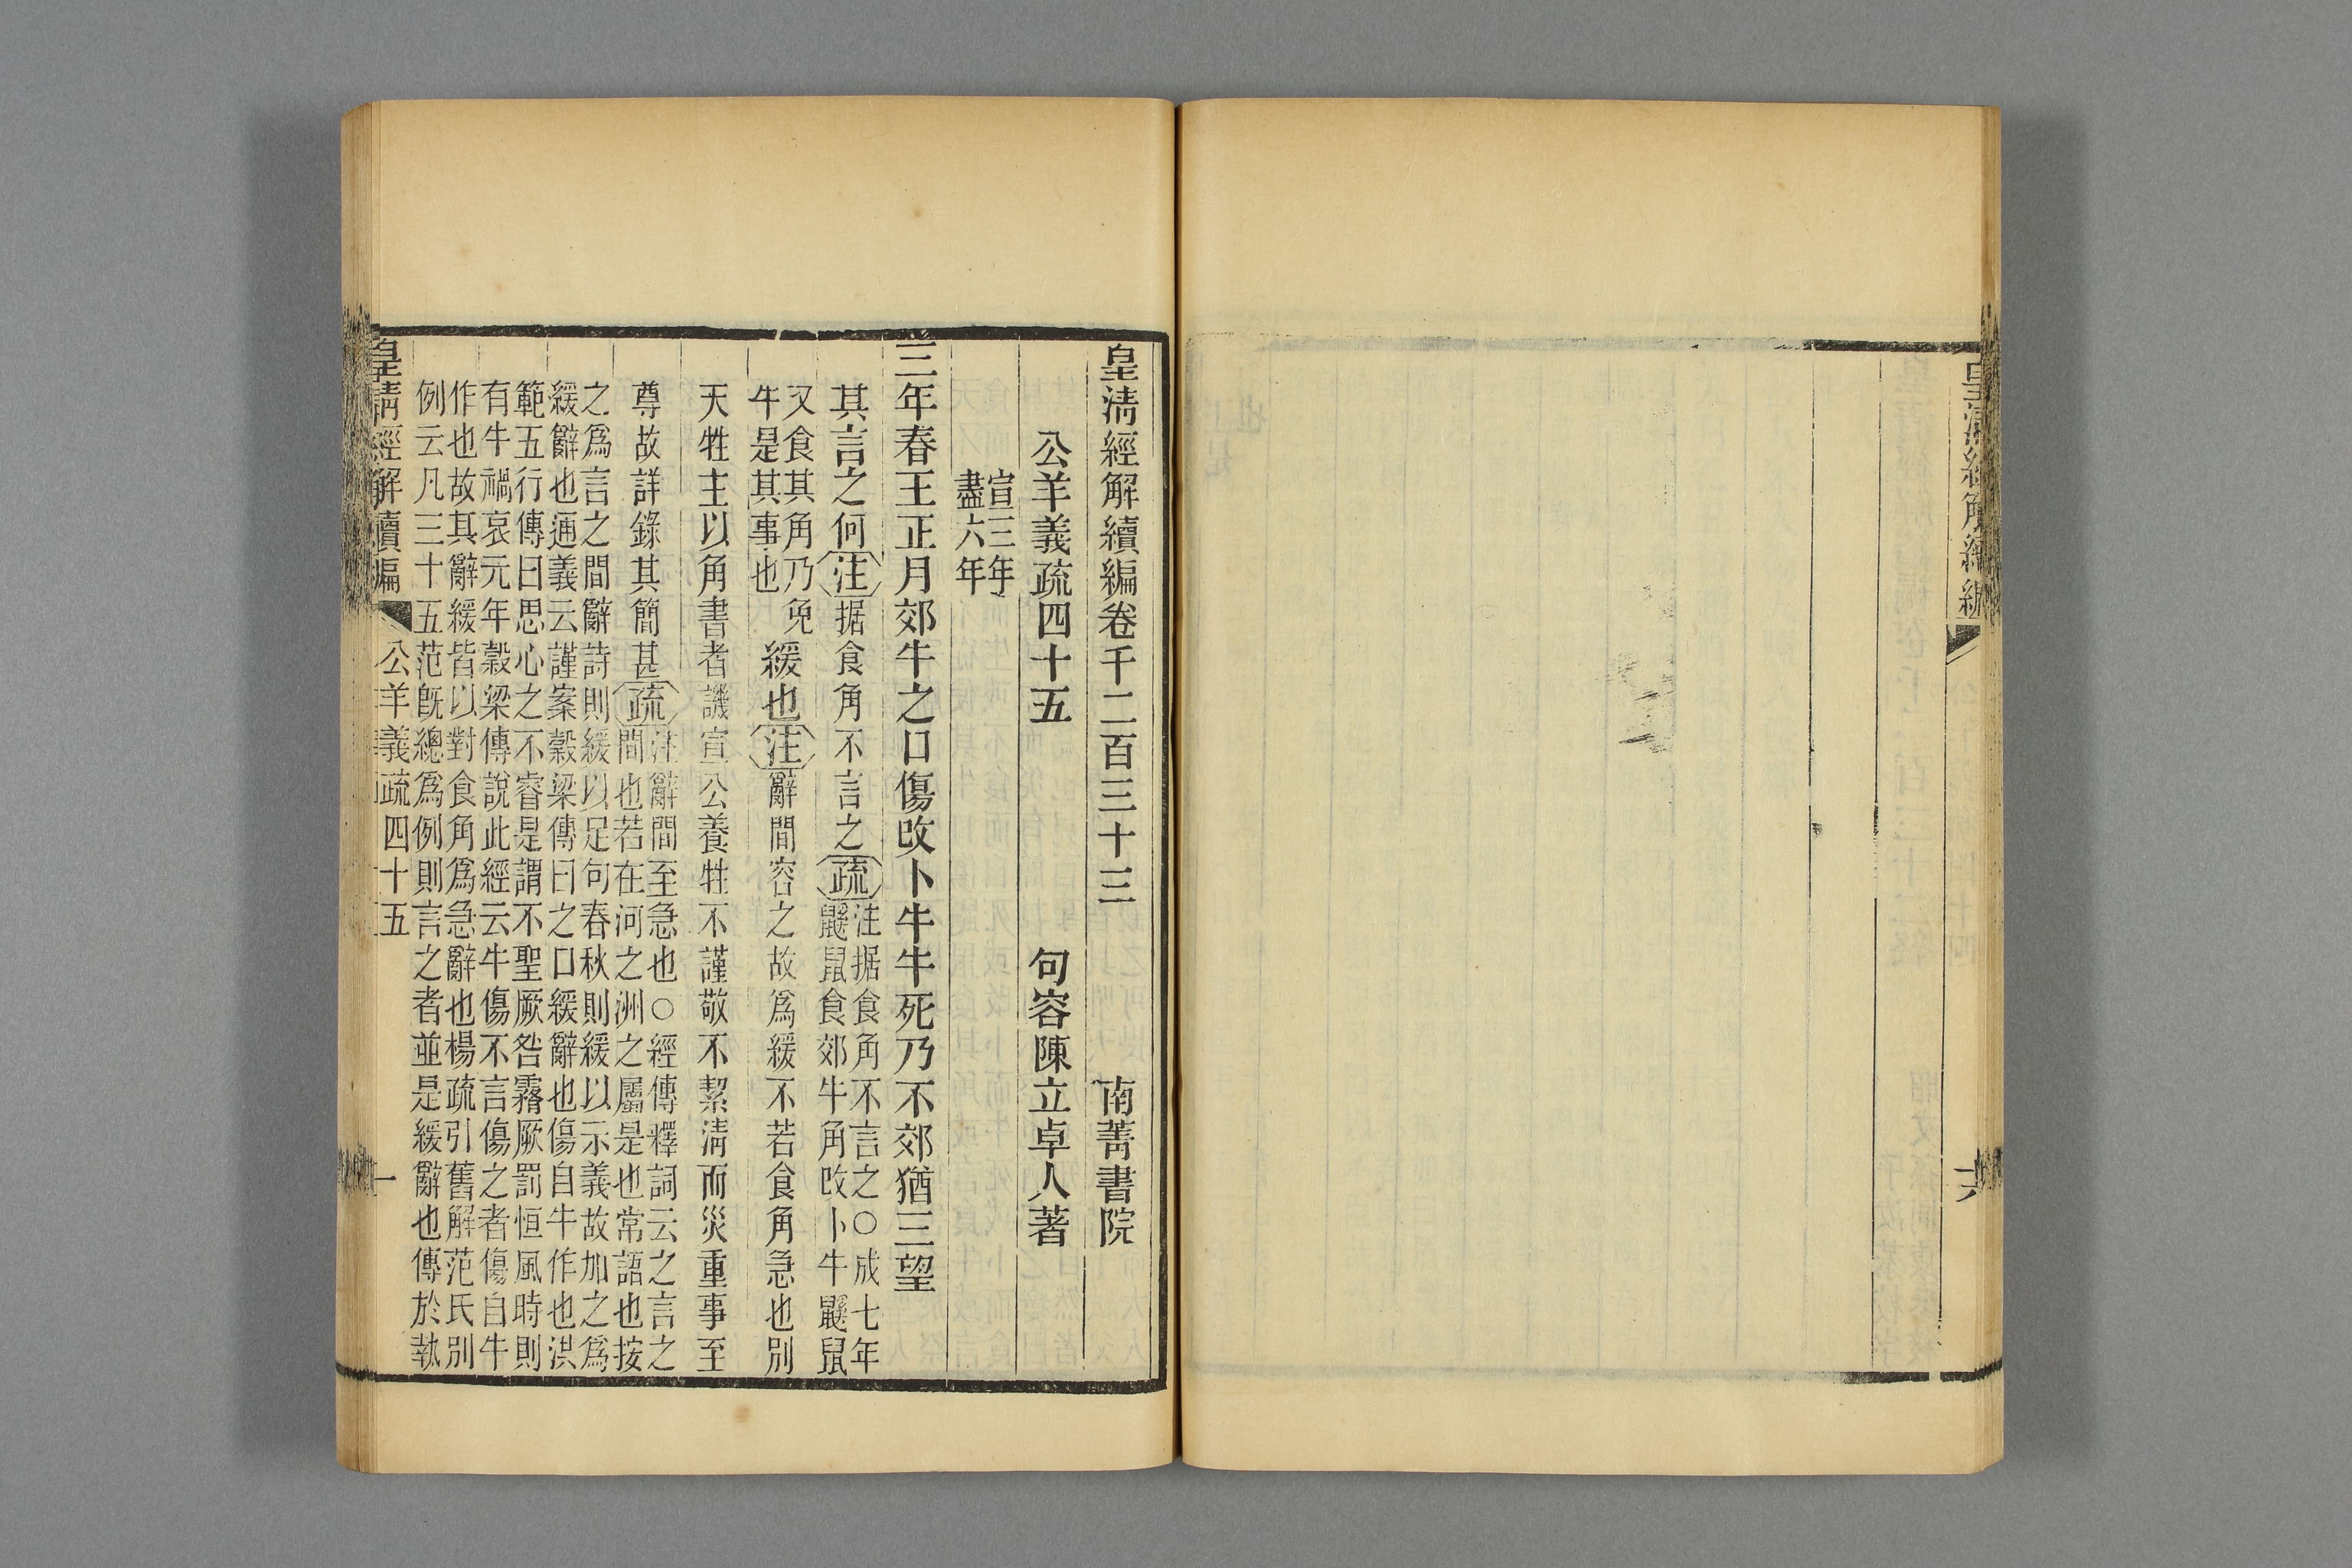 皇清經解續編
六
皇清經解續編卷千二百三十三 南菁書院
公羊義疏四十五 句容陳立卓人著
宣三年
盡六年
三年春王正月郊牛之口傷改卜牛牛死乃不郊猶三望
其言之何注据食角不言之疏
注据食角不言之○成七年
鼷鼠食郊牛角改卜牛鼷鼠
又食其角乃免
牛是其事也
緩也注辭間容之故爲緩不若食角急也別
天牲主以角書者譏宣公養牲不謹敬不絜清而災重事至
尊故詳錄其簡甚疏
注辭間至急也○經傳釋詞云之言之
間也若在河之洲之屬是也常語也按
之爲言之間辭詩則緩以足句春秋則緩以示義故加之爲
緩辭也通義云謹案穀梁傳曰之口緩辭也傷自牛作也洪
範五行傳曰思心之不睿是謂不聖厥咎霿厥罰恒風時則
有牛禍哀元年穀梁傳說此經云牛傷不言傷之者傷自牛
作也故其辭緩皆以對食角爲急辭也楊疏引舊解范氏別
例云凡三十五范旣總爲例則言之者並是緩辭也傳於執
皇清經解續編 公羊義疏四十五 一